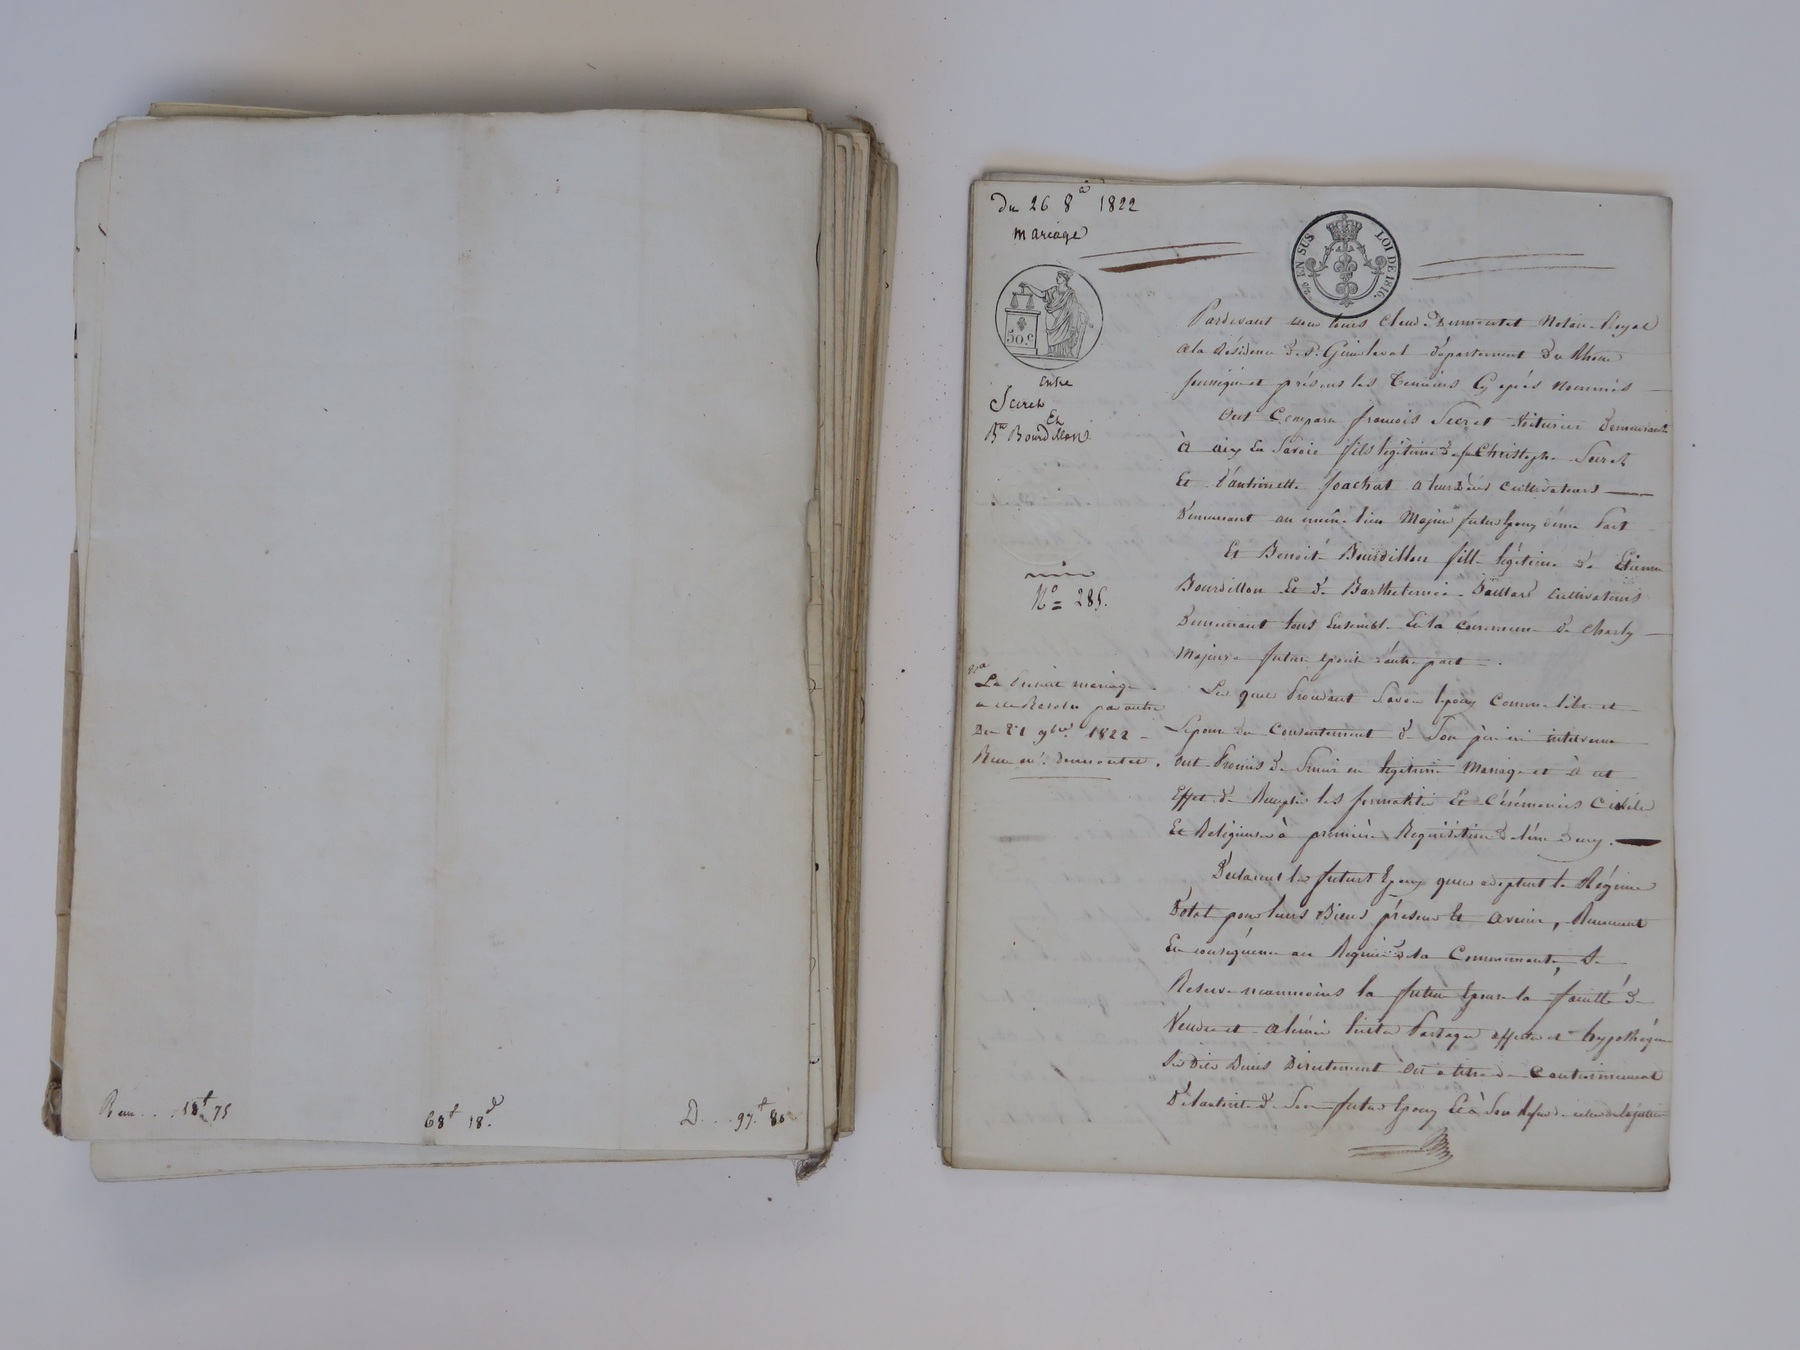 Reçu . . . 58# 75
68# 18.d
D. . . . 97.# 80
Du 26 8re 1822
Mariage
EN SUS
LOI DE 1816.
50.c
Entre
Secret
Et
Bte Bourdillon
N° = 285.
Le Mariage
a été Résolu par autre
Du 21 9bre 1822 -
Reçu Me Dumortet.
Pardevant Claude Dumortet Notaire Royal
à la Résidence de St. Genis laval département Du Rhône
soussigné et présens les Témoins Cy après nommés
Ont Comparu françois Secret Voiturier Demeurant
à aix En Savoie fils légitime de feu Christophe Secret
Et d'antoinette Joachat cultivateurs
Demeurant au même lieu Majeur futur Epoux d'une Part
Et Benoîte Bourdillon fille légitime de Etienne
Bourdillon Et de Barthelemie Cultivateurs
Demeurant tous Ensemble En la Commune de Charly
Majeure future épouse d'autre part.
Les quels Procédant Savoir l'époux Comme libre et
L'épouse du Consentement de Son père ici intervenu
Ont Promis de S'unir en légitime Mariage et à cet
Effet de Remplir les formalités Et Cérémonies Civiles
Et Religieuses à première Requisition de l'un D'eux.
Déclarent les futurs Epoux qu'ils adoptent le Régime
Dotal pour leurs Biens présens Et avenir, Renoncent
En conséquence au Régime de la Communauté, Se
Réserve néanmoins la future Epouse la faculté de
Vendre et aliéner Partager affecter et hypothéquer
Ses Dits Biens Directement ou à titre de Cautionnement
De l'autorité de Son futur Epoux Et à Son refus de celle de la justice